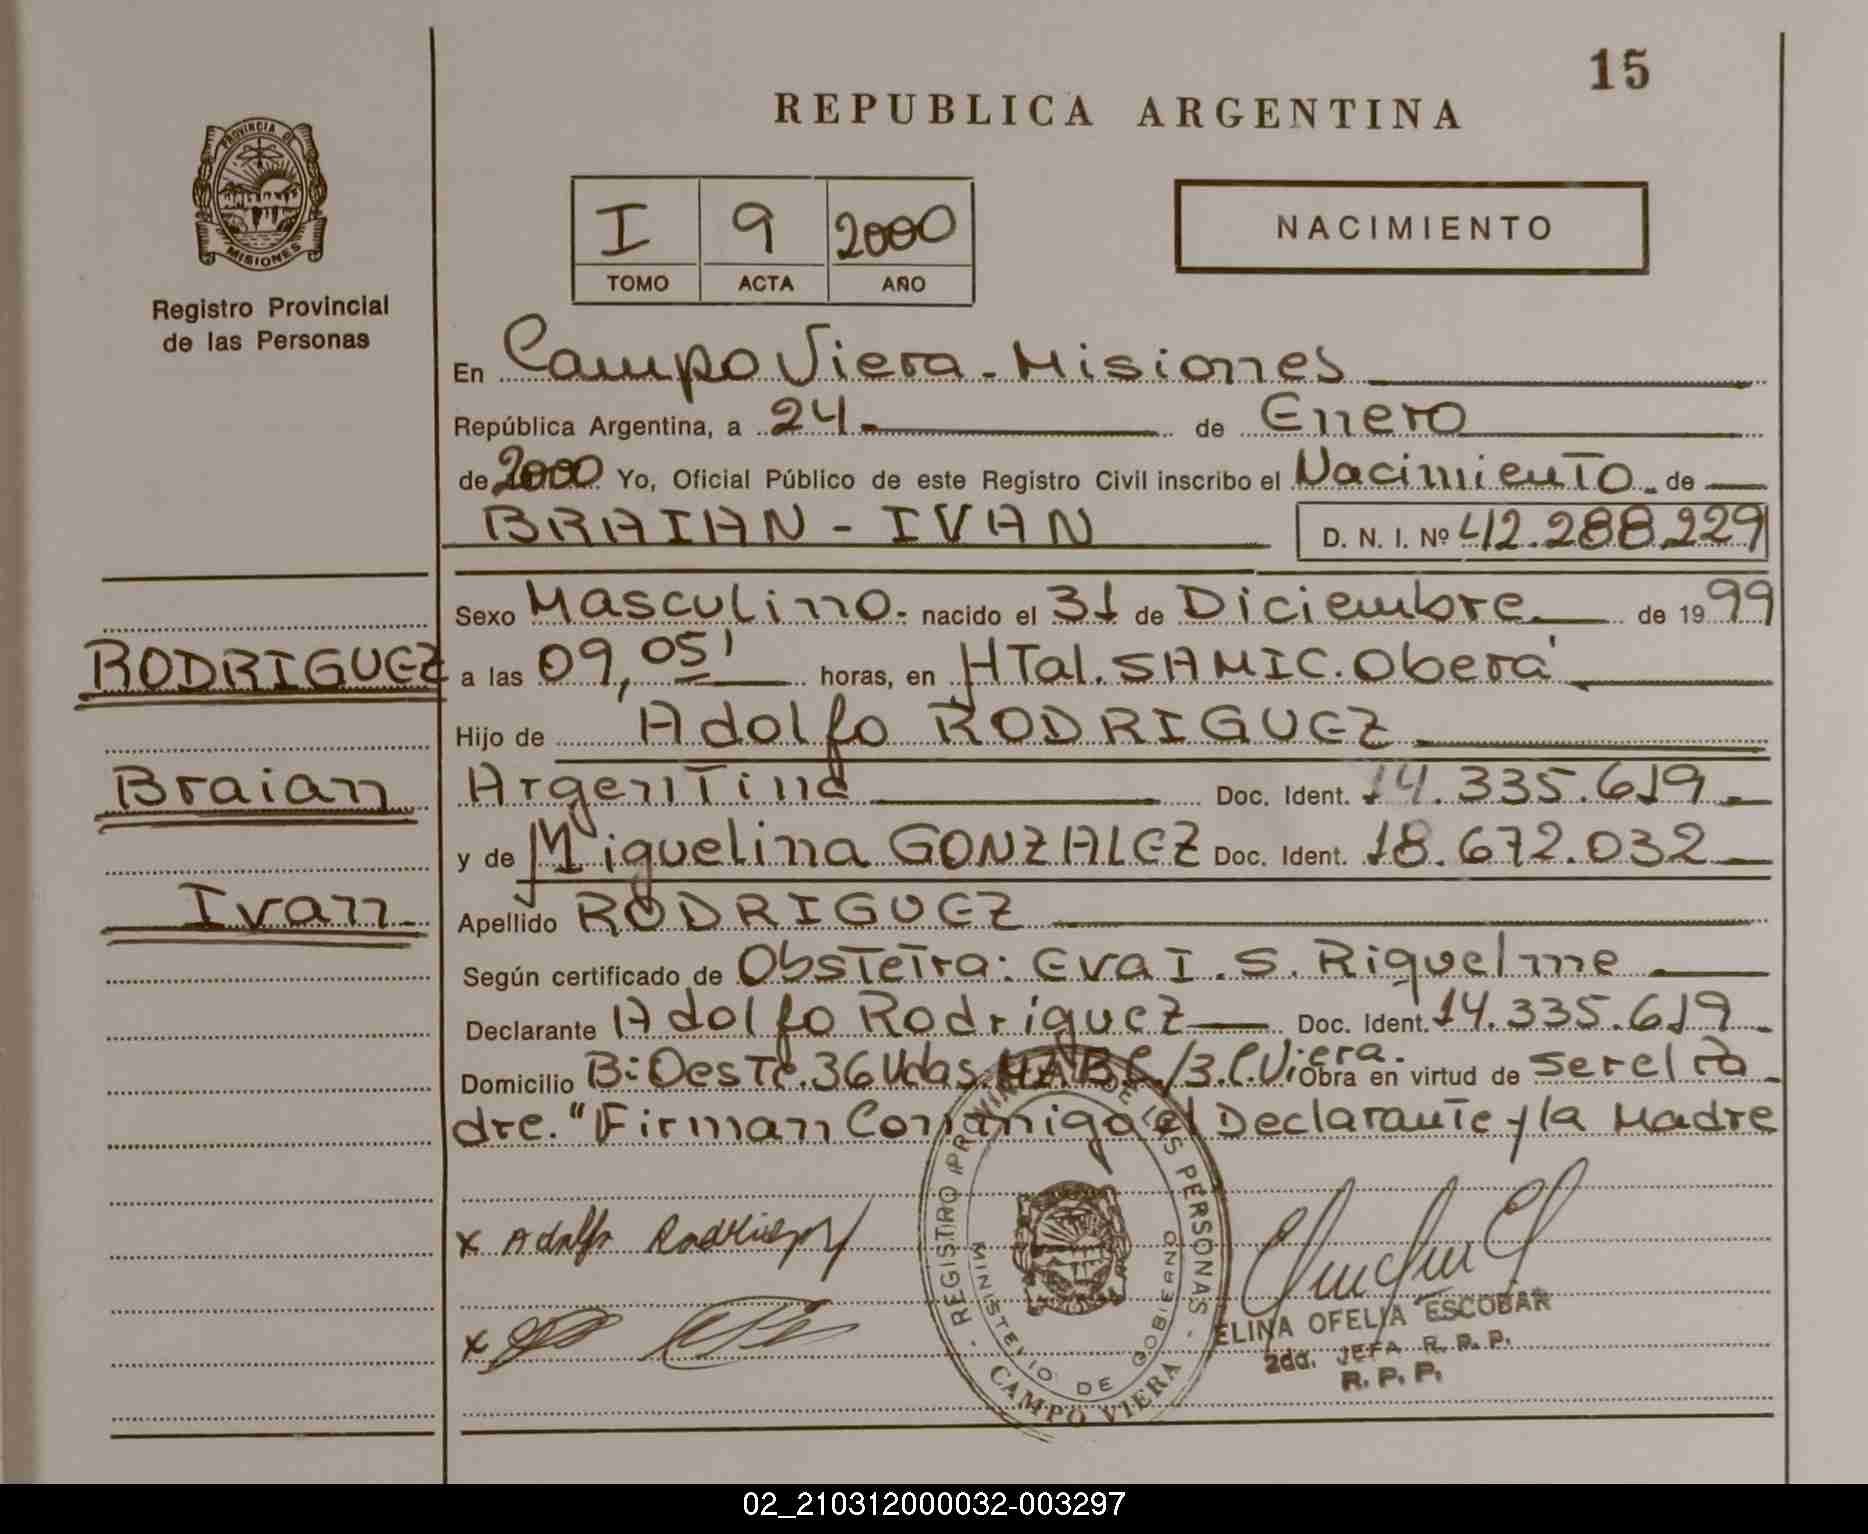 15
REPUBLICA ARGENTINA
PROVINCIA DE
MISIONES
Registro Provincial
de las Personas
I 9 2000
TOMO ACTA AÑO
NACIMIENTO
En Campo Viera - Misiones
República Argentina, a 24 de Enero
de 2000 Yo, Oficial Público de este Registro Civil inscribo el Nacimiento de
BRAIAN - IVAN D. N. I. Nº 42.288.229
Sexo Masculino. nacido el 31 de Diciembre de 1999
RODRIGUEZ a las 09,05' horas, en HTal. SAMIC. Oberá
Hijo de Adolfo RODRIGUEZ
Braian Argentina Doc. Ident. 14.335.619
y de Miguelina GONZALEZ Doc. Ident. 18.672.032
Ivan Apellido RODRIGUEZ
Según certificado de Obstetra: Eva I. S. Riquelme
Declarante Adolfo Rodriguez Doc. Ident. 14.335.619
Domicilio B: Oeste. 36 Vdas. /3. C. Viera. Obra en virtud de ser el Pa
dre. "Firman Conmigo el Declarante y la Madre
x Adolfo Rodriguez
x
REGISTRO PROVINCIAL DE LAS PERSONAS
MINISTERIO DE GOBIERNO
CAMPO VIERA
ELINA OFELIA ESCOBAR
2da. JEFA R. P. P.
R. P. P.
02_210312000032-003297